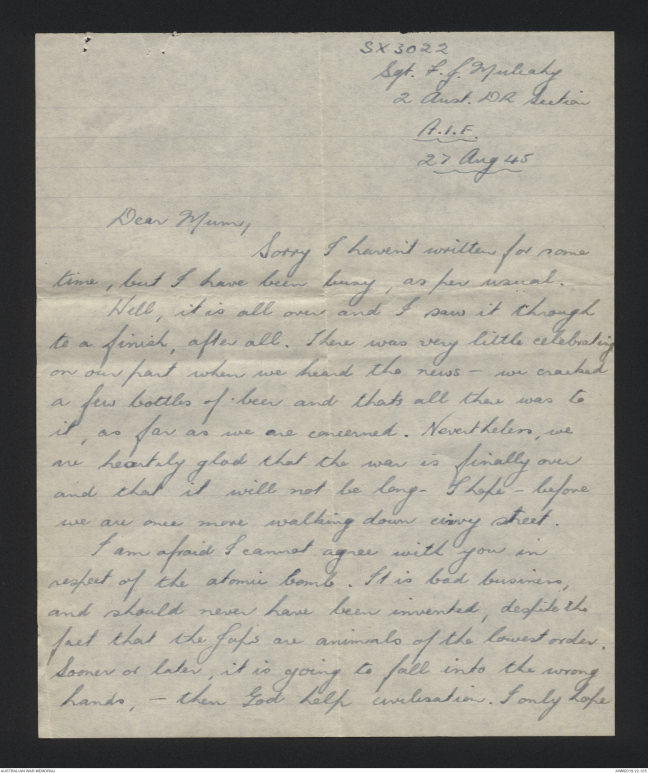 SX3022
Sgt. F. J. Mulcahy
2 Aust. DR Section
A.I.F.
27 Aug 45
Dear Mum,
Sorry I haven't written for some
time, but I have been busy, as per usual.
Well, it is all over and I saw it through
to a finish, after all. There was very little celebrating
on our part when we heard the news – we cracked
a few bottles of beer and thats all there was to
it, as far as we are concerned. Nevertheless, we
are heartily glad that the war is finally over
and that it will not be long – I hope – before
we are once more walking down street.
I am afraid I cannot agree with you in
respect of the atomic bomb. It is bad business,
and should never have been invented, despite the
fact that the Japs are animals of the lowest order.
Sooner or later, it is going to fall into the wrong
hands, – then God help civilisation. I only hope
AUSTRALIAN WAR MEMORIAL